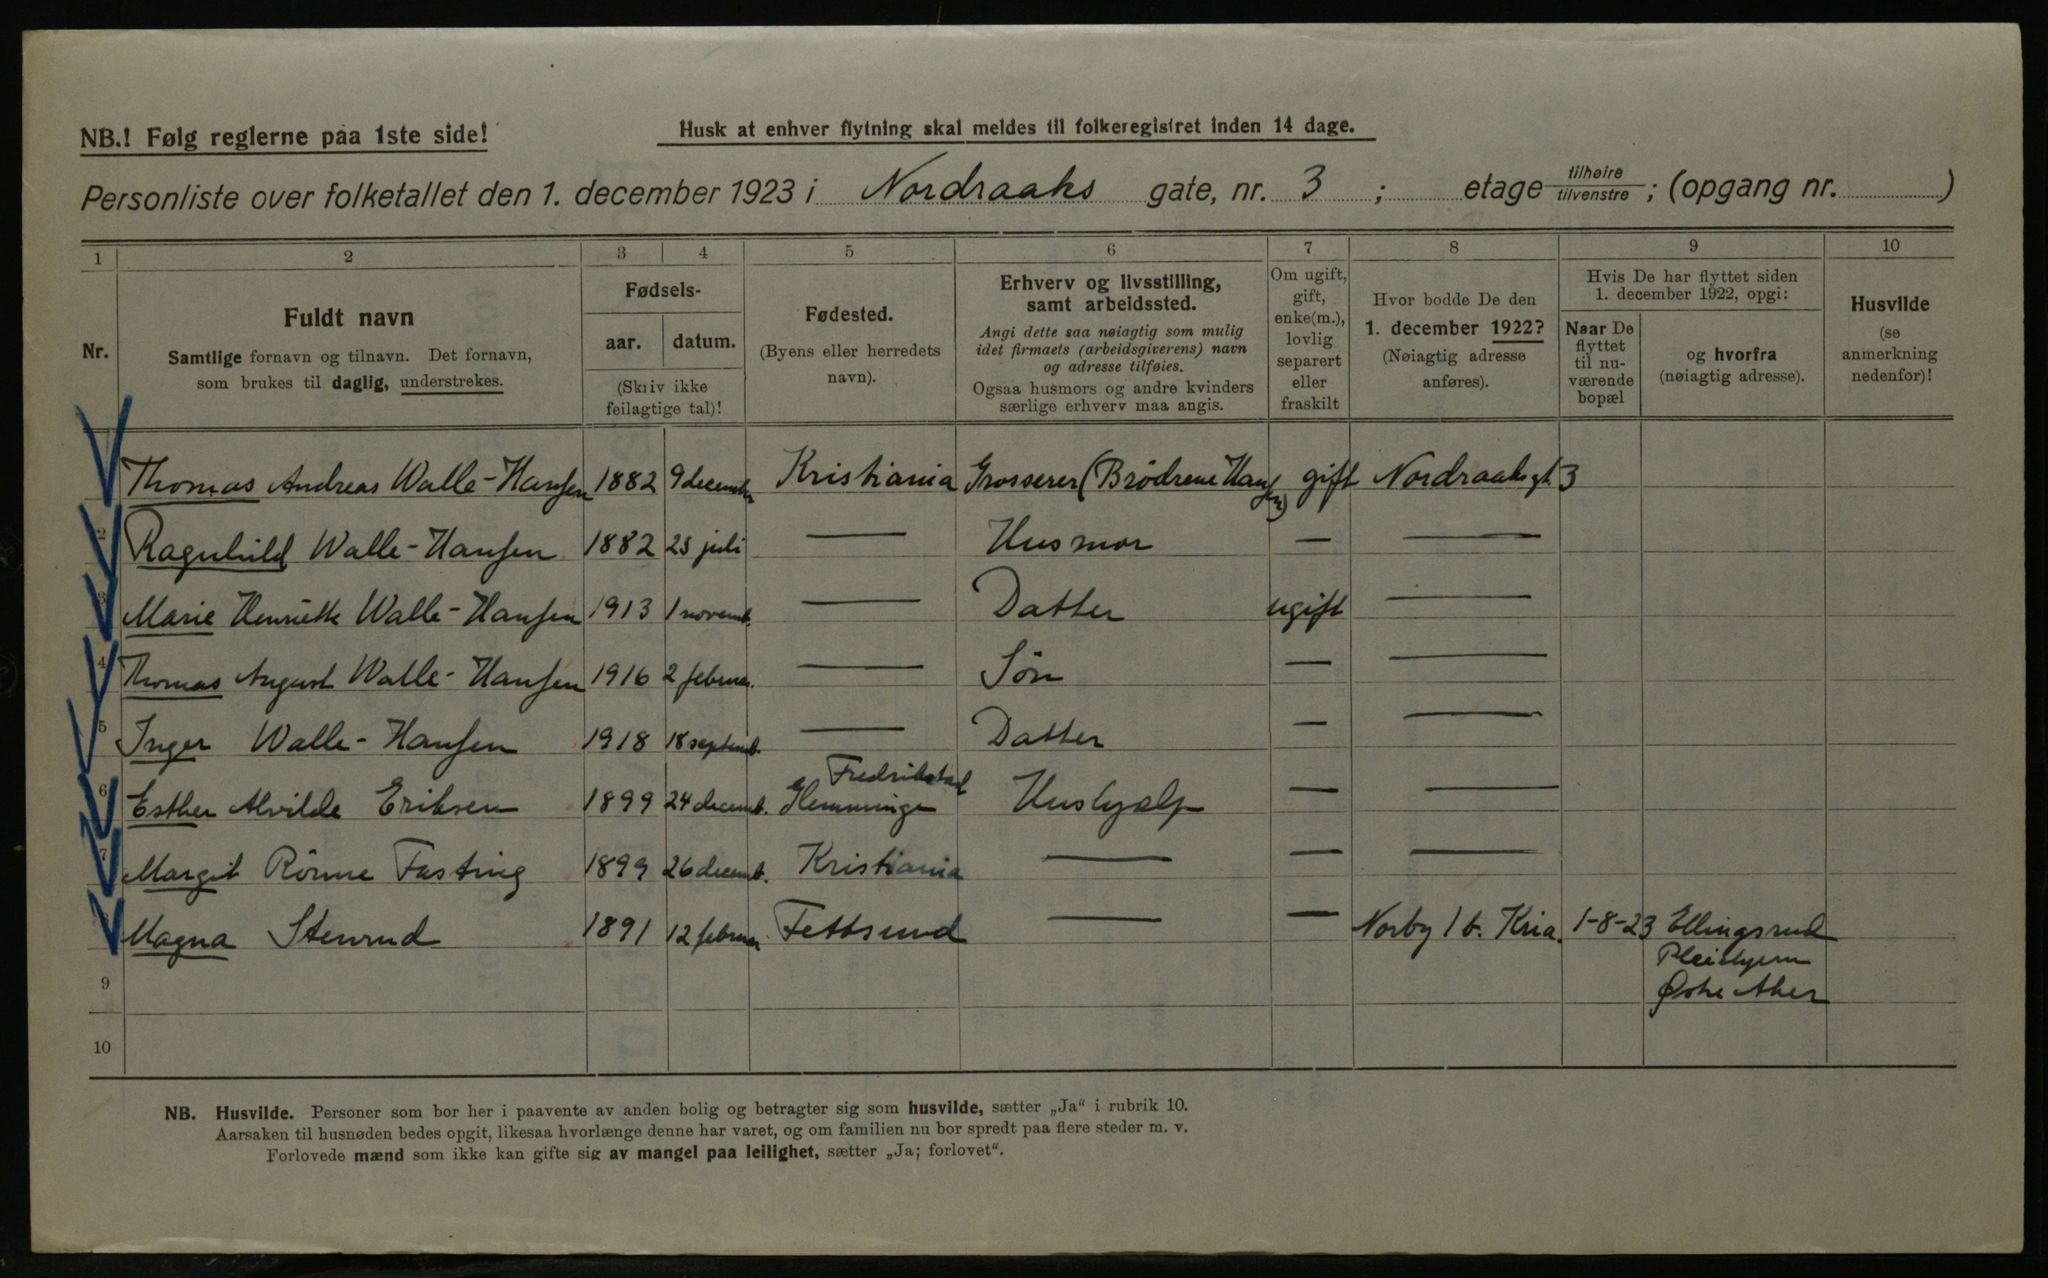 NB.! Følg reglerne paa 1ste side!
Husk at enhver flytning skal meldes til folkeregistret inden 14 dage.
Personliste over folketallet den 1. december 1923 i Nordraaks gate, nr. 3 ; etage tilhøire tilvenstre ; (opgang nr. )
1 2 3 4 5 6 7 8 9 10
Nr.
Fuldt navn
Samtlige fornavn og tilnavn. Det fornavn,
som brukes til daglig, understrekes.
Fødsels-
aar. datum.
(Skriv ikke
feilagtige tal)!
Fødested.
(Byens eller herredets
navn).
Erhverv og livsstilling,
samt arbeidssted.
Angi dette saa nøiagtig som mulig
idet firmaets (arbeidsgiverens) navn
og adresse tilføies.
Ogsaa husmors og andre kvinders
særlige erhverv maa angis.
Om ugift,
gift,
enke(m.),
lovlig
separert
eller
fraskilt
Hvor bodde De den
1. december 1922?
(Nøiagtig adresse
anføres).
Hvis De har flyttet siden
1. december 1922, opgi:
Naar De
flyttet
til nu-
værende
bopæl
og hvorfra
(nøiagtig adresse).
Husvilde
(se
anmerkning
nedenfor)!
Thomas Andreas Walle-Hansen 1882 9 december Kristiania Grosserer (Brödrene Hansen) gift Nordraaksgt. 3
2 Ragnhild Walle-Hansen 1882 25 juli — Husmor — —
3 Marie Henriette Walle-Hansen 1913 1 novemb. — Datter ugift —
4 Thomas August Walle-Hansen 1916 2 februar. — Sön — —
5 Inger Walle-Hansen 1918 18 septemb. — Datter — —
6 Esther Alvilde Eriksen 1899 24 decemb. Glemminge Fredrikstad Hushjælp — —
7 Margit Rönne Fasting 1899 26 decemb. Kristiania — — —
8 Magna Stenrud 1891 12 februar Fettsund — — Norby 1 b. Kria. 1-8-23 Ellingsrud
Pleiehjem
9 Østre Aker
10
NB. Husvilde. Personer som bor her i paavente av anden bolig og betragter sig som husvilde, sætter „Ja" i rubrik 10.
Aarsaken til husnøden bedes opgit, likesaa hvorlænge denne har varet, og om familien nu bor spredt paa flere steder m. v.
Forlovede mænd som ikke kan gifte sig av mangel paa leilighet, sætter „Ja; forlovet".